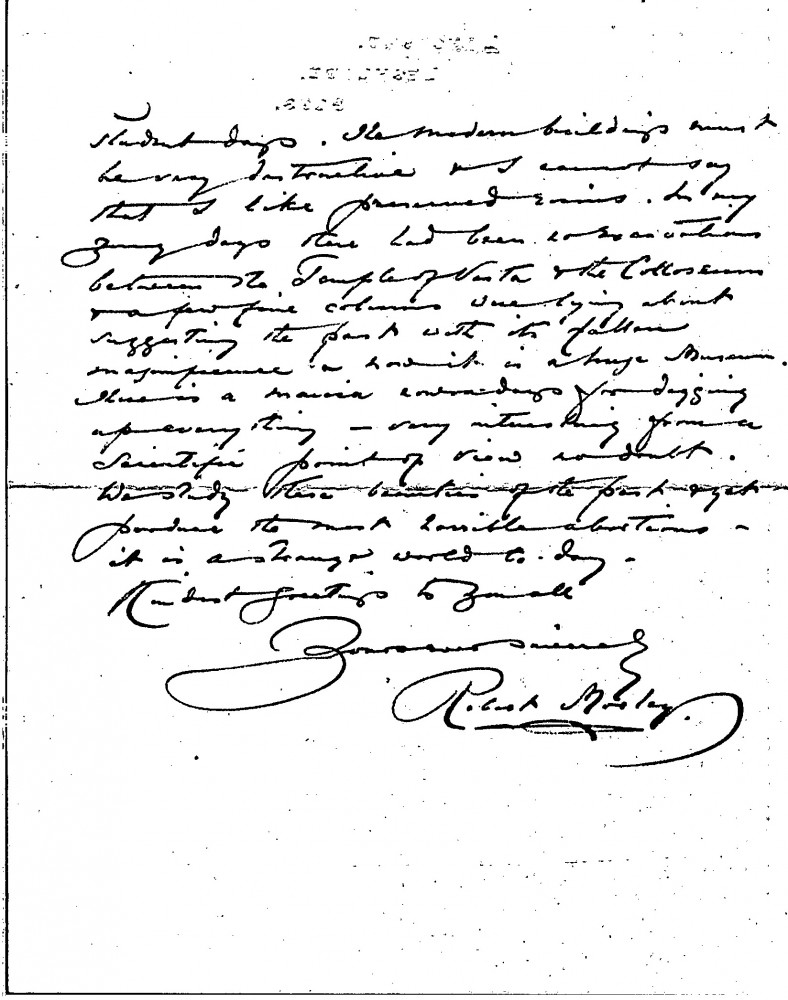 student days. The modern buildings must
be very destructive & I cannot say
that I like preserved ruins. In my
young days there had been no excavations
between the Temple of Vesta & the Colloseum
& a few fine columns were lying about
suggesting the past with its fallen
magnificence & now it is a huge Museum.
There is a mania nowadays for digging
up everything – very interesting from a
Scientific point of view no doubt.
We study these beauties of the past & yet
produce the most horrible abortions –
it is a strange world to-day –
Kindest greetings to you all
Yours sincerely
Robert Morley.